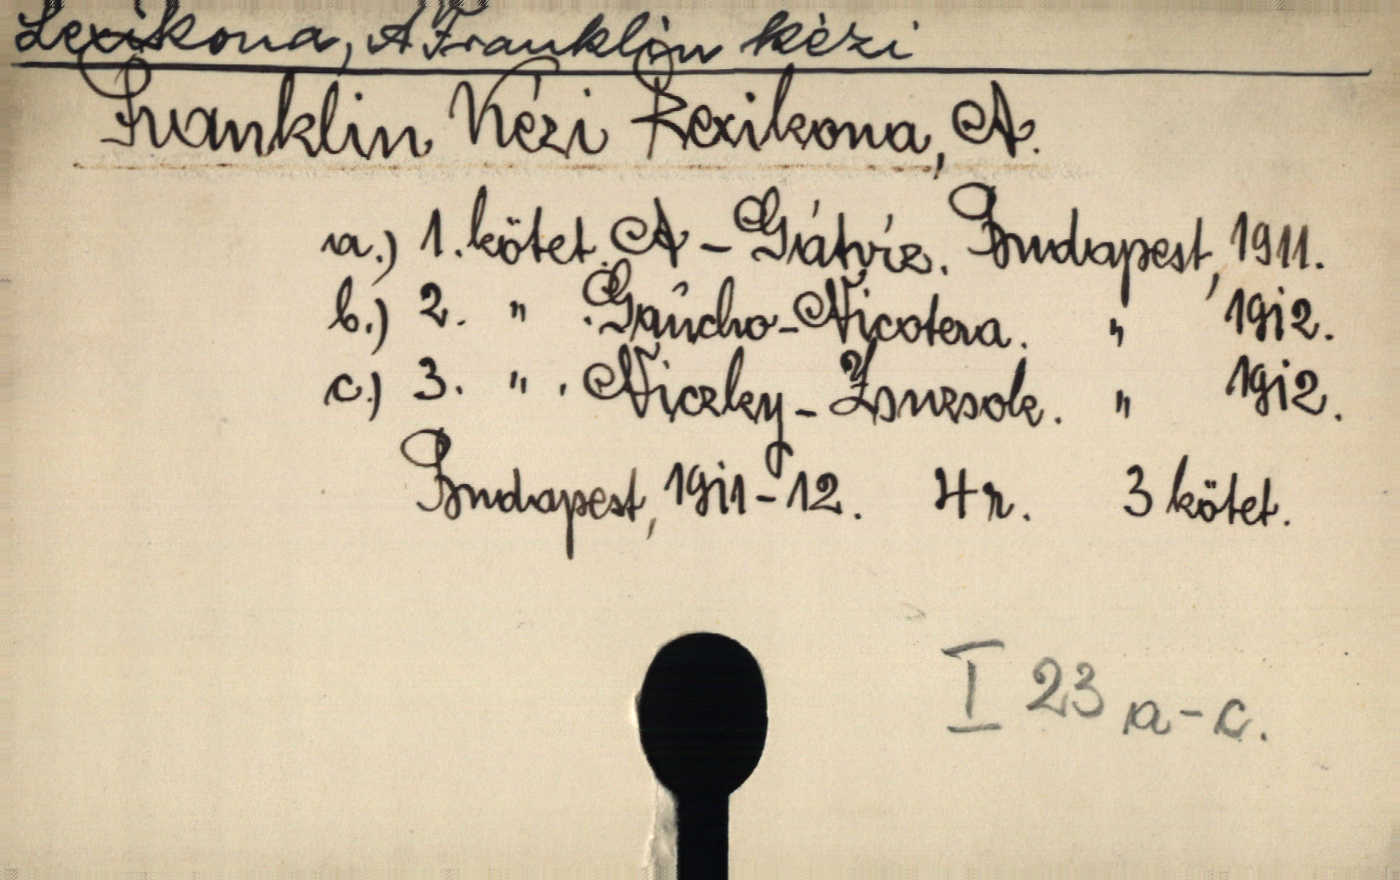 Lexikona, A Franklin kézi
Franklin Kézi Lexikona, A.
a.) 1. kötet. A - Gátvíz. Budapest, 1911.
b.) 2. " . Gaucho - Nicotera. " 1912.
c.) 3. " . Niczky - Zsuzsok. " 1912.
Budapest, 1911 - 12. 4 r. 3 kötet.
I 23 a - c.